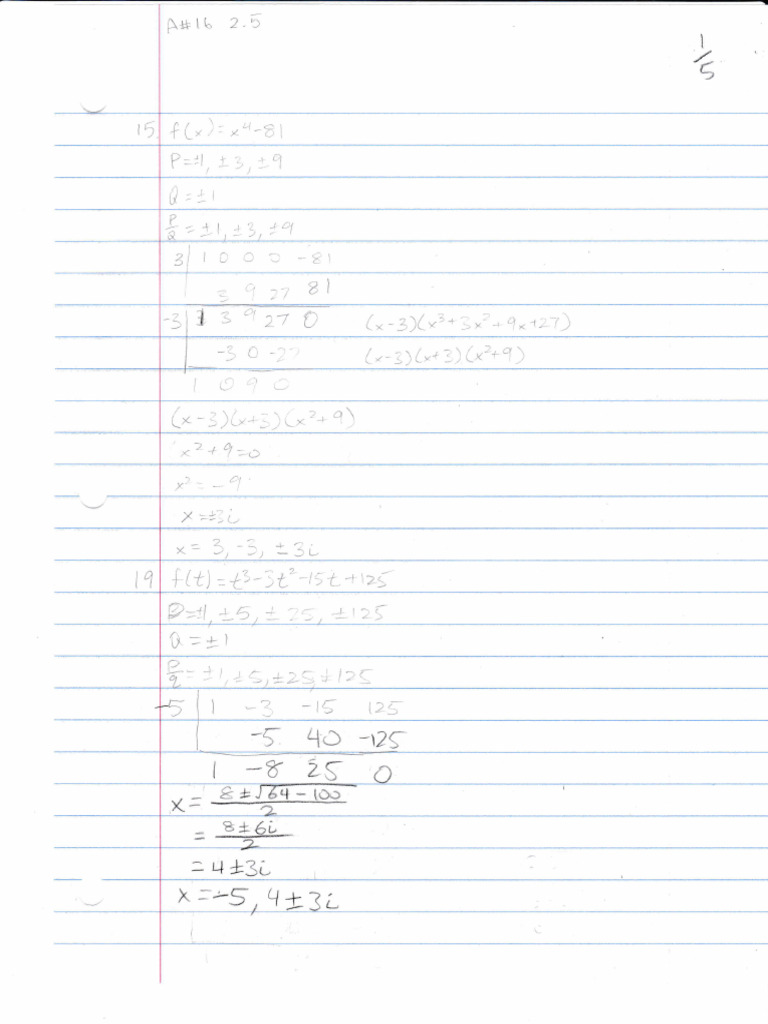 A#16 2.5
1/5
15 f(x)=x⁴-81
P=±1, ±3, ±9
Q=±1
P/Q=±1,±3,±9
3 | 1 0 0 0 -81
3 9 27 81
-3 | 1 3 9 27 0 (x-3)(x³+3x²+9x+27)
-3 0 -27 (x-3)(x+3)(x²+9)
1 0 9 0
(x-3)(x+3)(x²+9)
x²+9=0
x²=-9
x=±3i
x= 3, -3, ±3i
19 f(t)=t³-3t²-15t+125
P=±1, ±5, ±25, ±125
Q=±1
P/q=±1,±5,±25,±125
-5 | 1 -3 -15 125
-5 40 -125
1 -8 25 0
x= 8±√64-100/2
= 8±6i/2
=4±3i
x=-5, 4±3i